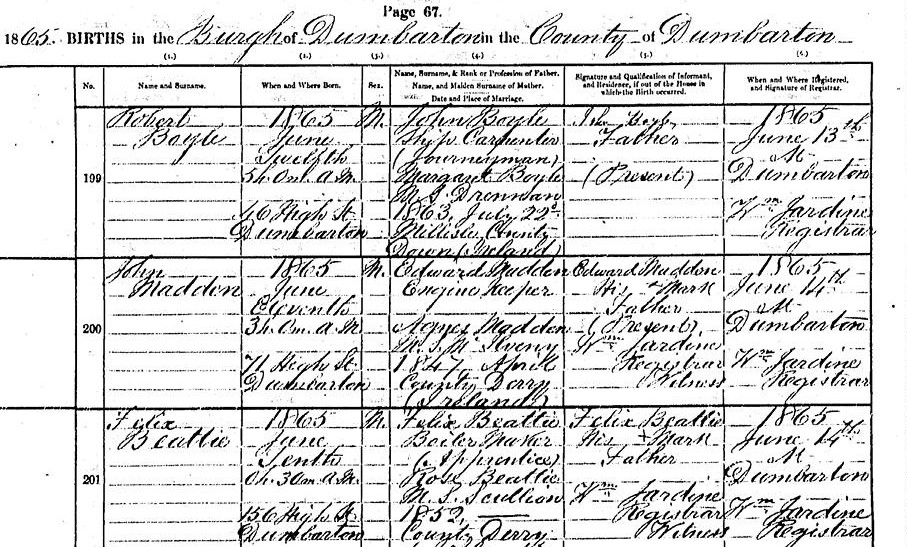 Page 67.
1865. BIRTHS in the Burgh of Dumbarton in the County of Dumbarton
(1.) (2.) (3.) (4.) (5.) (6.)
No. Name and Surname. When and Where Born. Sex. Name, Surname, & Rank or Profession of Father. Name, and Maiden Surname of Mother. Date and Place of Marriage. Signature and Qualification of Informant, and Residence, if out of the House in which the Birth occurred. When and Where Registered, and Signature of Registrar.
199
Robert
Boyle
1865
June
Twelfth
5h. 0m. A.M.
46 High St
Dumbarton
M.
John Boyle
Ship Carpenter
(Journeyman)
Margaret Boyle
M.S. Drennan
1863, July 22d
Millisle County
Down (Ireland)
John Boyle
Father
(Present)
1865
June 13th
At
Dumbarton
Wm Jardine
Registrar
200
John
Madden
1865
June
Eleventh
3h. 0m. A.M.
71 High St.
Dumbarton
M.
Edward Madden
Engine Keeper
Agnes Madden
M.S. McIlveny
1847, April
County Derry
(Ireland)
Edward Madden
His x Mark
Father
(Present)
Wm Jardine
Registrar
Witness
1865
June 14th
At
Dumbarton
Wm Jardine
Registrar
201
Felix
Beattie
1865
June
Tenth
0h. 30m. A.M.
156 High St
Dumbarton
M.
Felix Beattie
Boiler Maker
(Apprentice)
Rose Beattie
M.S. Scullion
1852,
County Derry
Felix Beattie
His x Mark
Father
Wm Jardine
Registrar
Witness
1865
June 14th
At
Dumbarton
Wm Jardine
Registrar